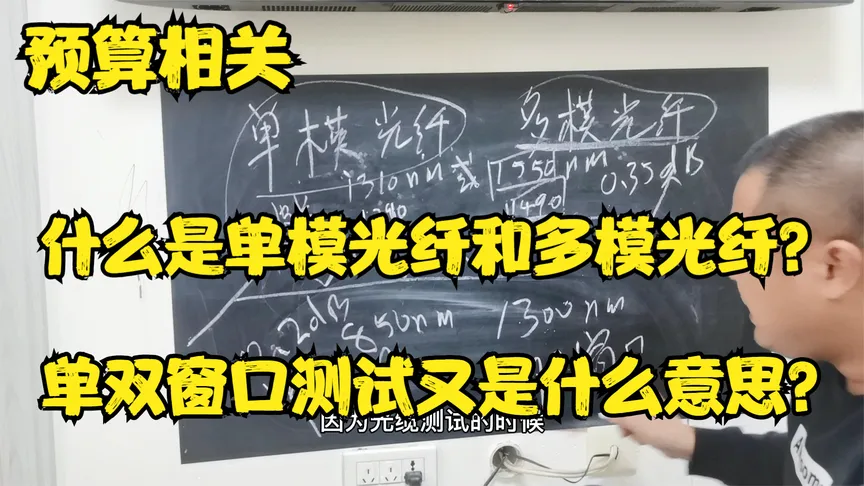 预算相关
单模光纤 多模光纤
1310nm 或 1550nm 0.35dB
1490
什么是单模光纤和多模光纤?
2dB 850nm 1300nm
单双窗口测试又是什么意思?
因为光缆测试的时候